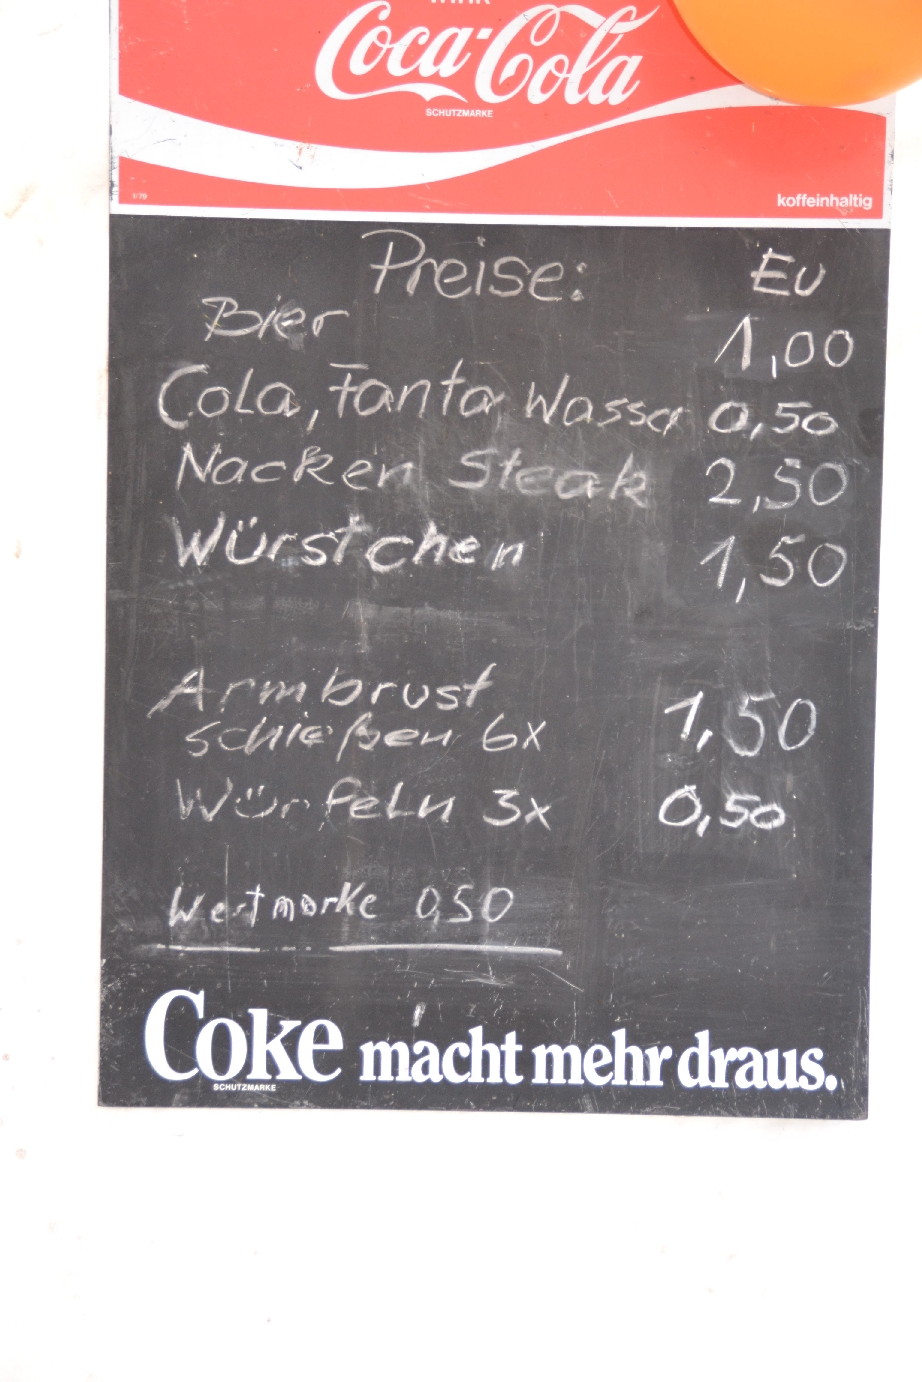 Coca-Cola
SCHUTZMARKE
1/79
koffeinhaltig
Preise: EU
Bier 1,00
Cola, Fanta Wasser 0,50
Nacken Steak 2,50
Würstchen 1,50
Armbrust
schießen 6x 1,50
Würfeln 3x 0,50
Wertmarke 0,50
Coke macht mehr draus.
SCHUTZMARKE